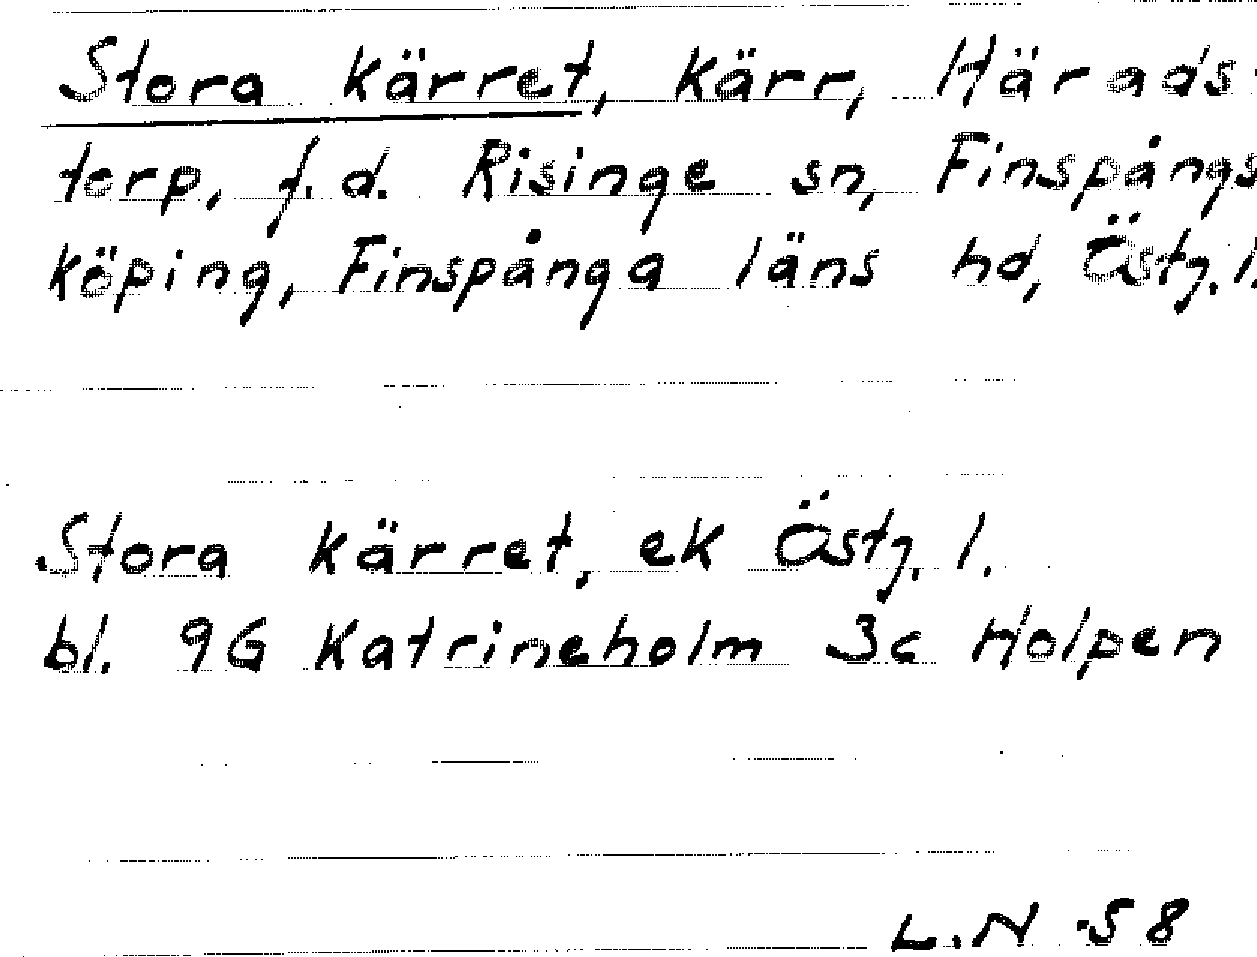 Stora kärret, kärr, Härads-
torp, f.d. Risinge sn, Finspångs
köping, Finspånga läns hd, Östg.l.
Stora kärret, ek Östg.l.
bl. 9G Katrineholm 3c Holpen
L.N 58